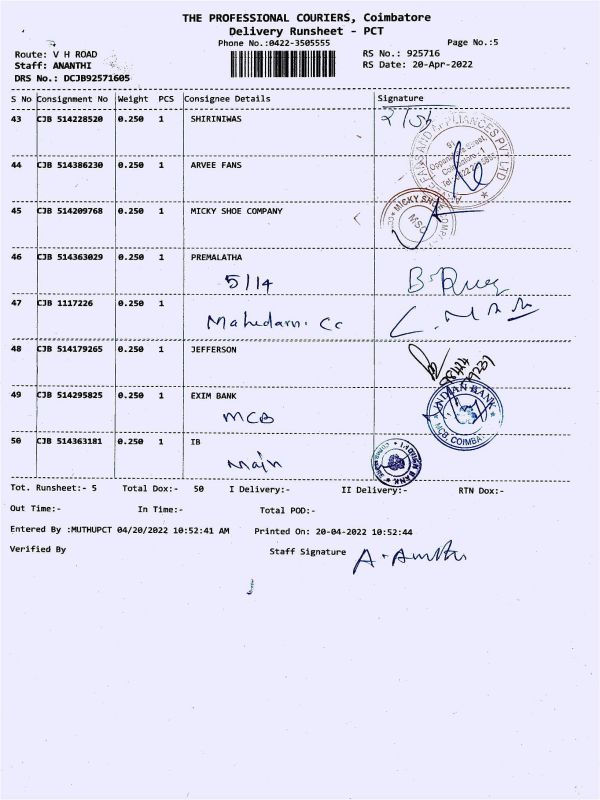 THE PROFESSIONAL COURIERS, Coimbatore
Delivery Runsheet - PCT
Phone No.:0422-3505555 Page No.:5
Route: V H ROAD RS No.: 925716
Staff: ANANTHI RS Date: 20-Apr-2022
DRS No.: DCJB92571605
S No Consignment No Weight PCS Consignee Details Signature
43 CJB 514228520 0.250 1 SHIRINIWAS
44 CJB 514386230 0.250 1 ARVEE FANS
FANS AND APPLIANCES PVT LTD
Oppanakara Street,
Coimbatore-1
45 CJB 514209768 0.250 1 MICKY SHOE COMPANY
MICKY SHOE COMPANY
MSC
46 CJB 514363029 0.250 1 PREMALATHA
5/14
47 CJB 1117226 0.250 1
48 CJB 514179265 0.250 1 JEFFERSON
49 CJB 514295825 0.250 1 EXIM BANK
MCB
INDIAN BANK
MCB, COIMBATORE
50 CJB 514363181 0.250 1 IB
Main
INDIAN BANK
Tot. Runsheet:- 5 Total Dox:- 50 I Delivery:- II Delivery:- RTN Dox:-
Out Time:- In Time:- Total POD:-
Entered By :MUTHUPCT 04/20/2022 10:52:41 AM Printed On: 20-04-2022 10:52:44
Verified By Staff Signature